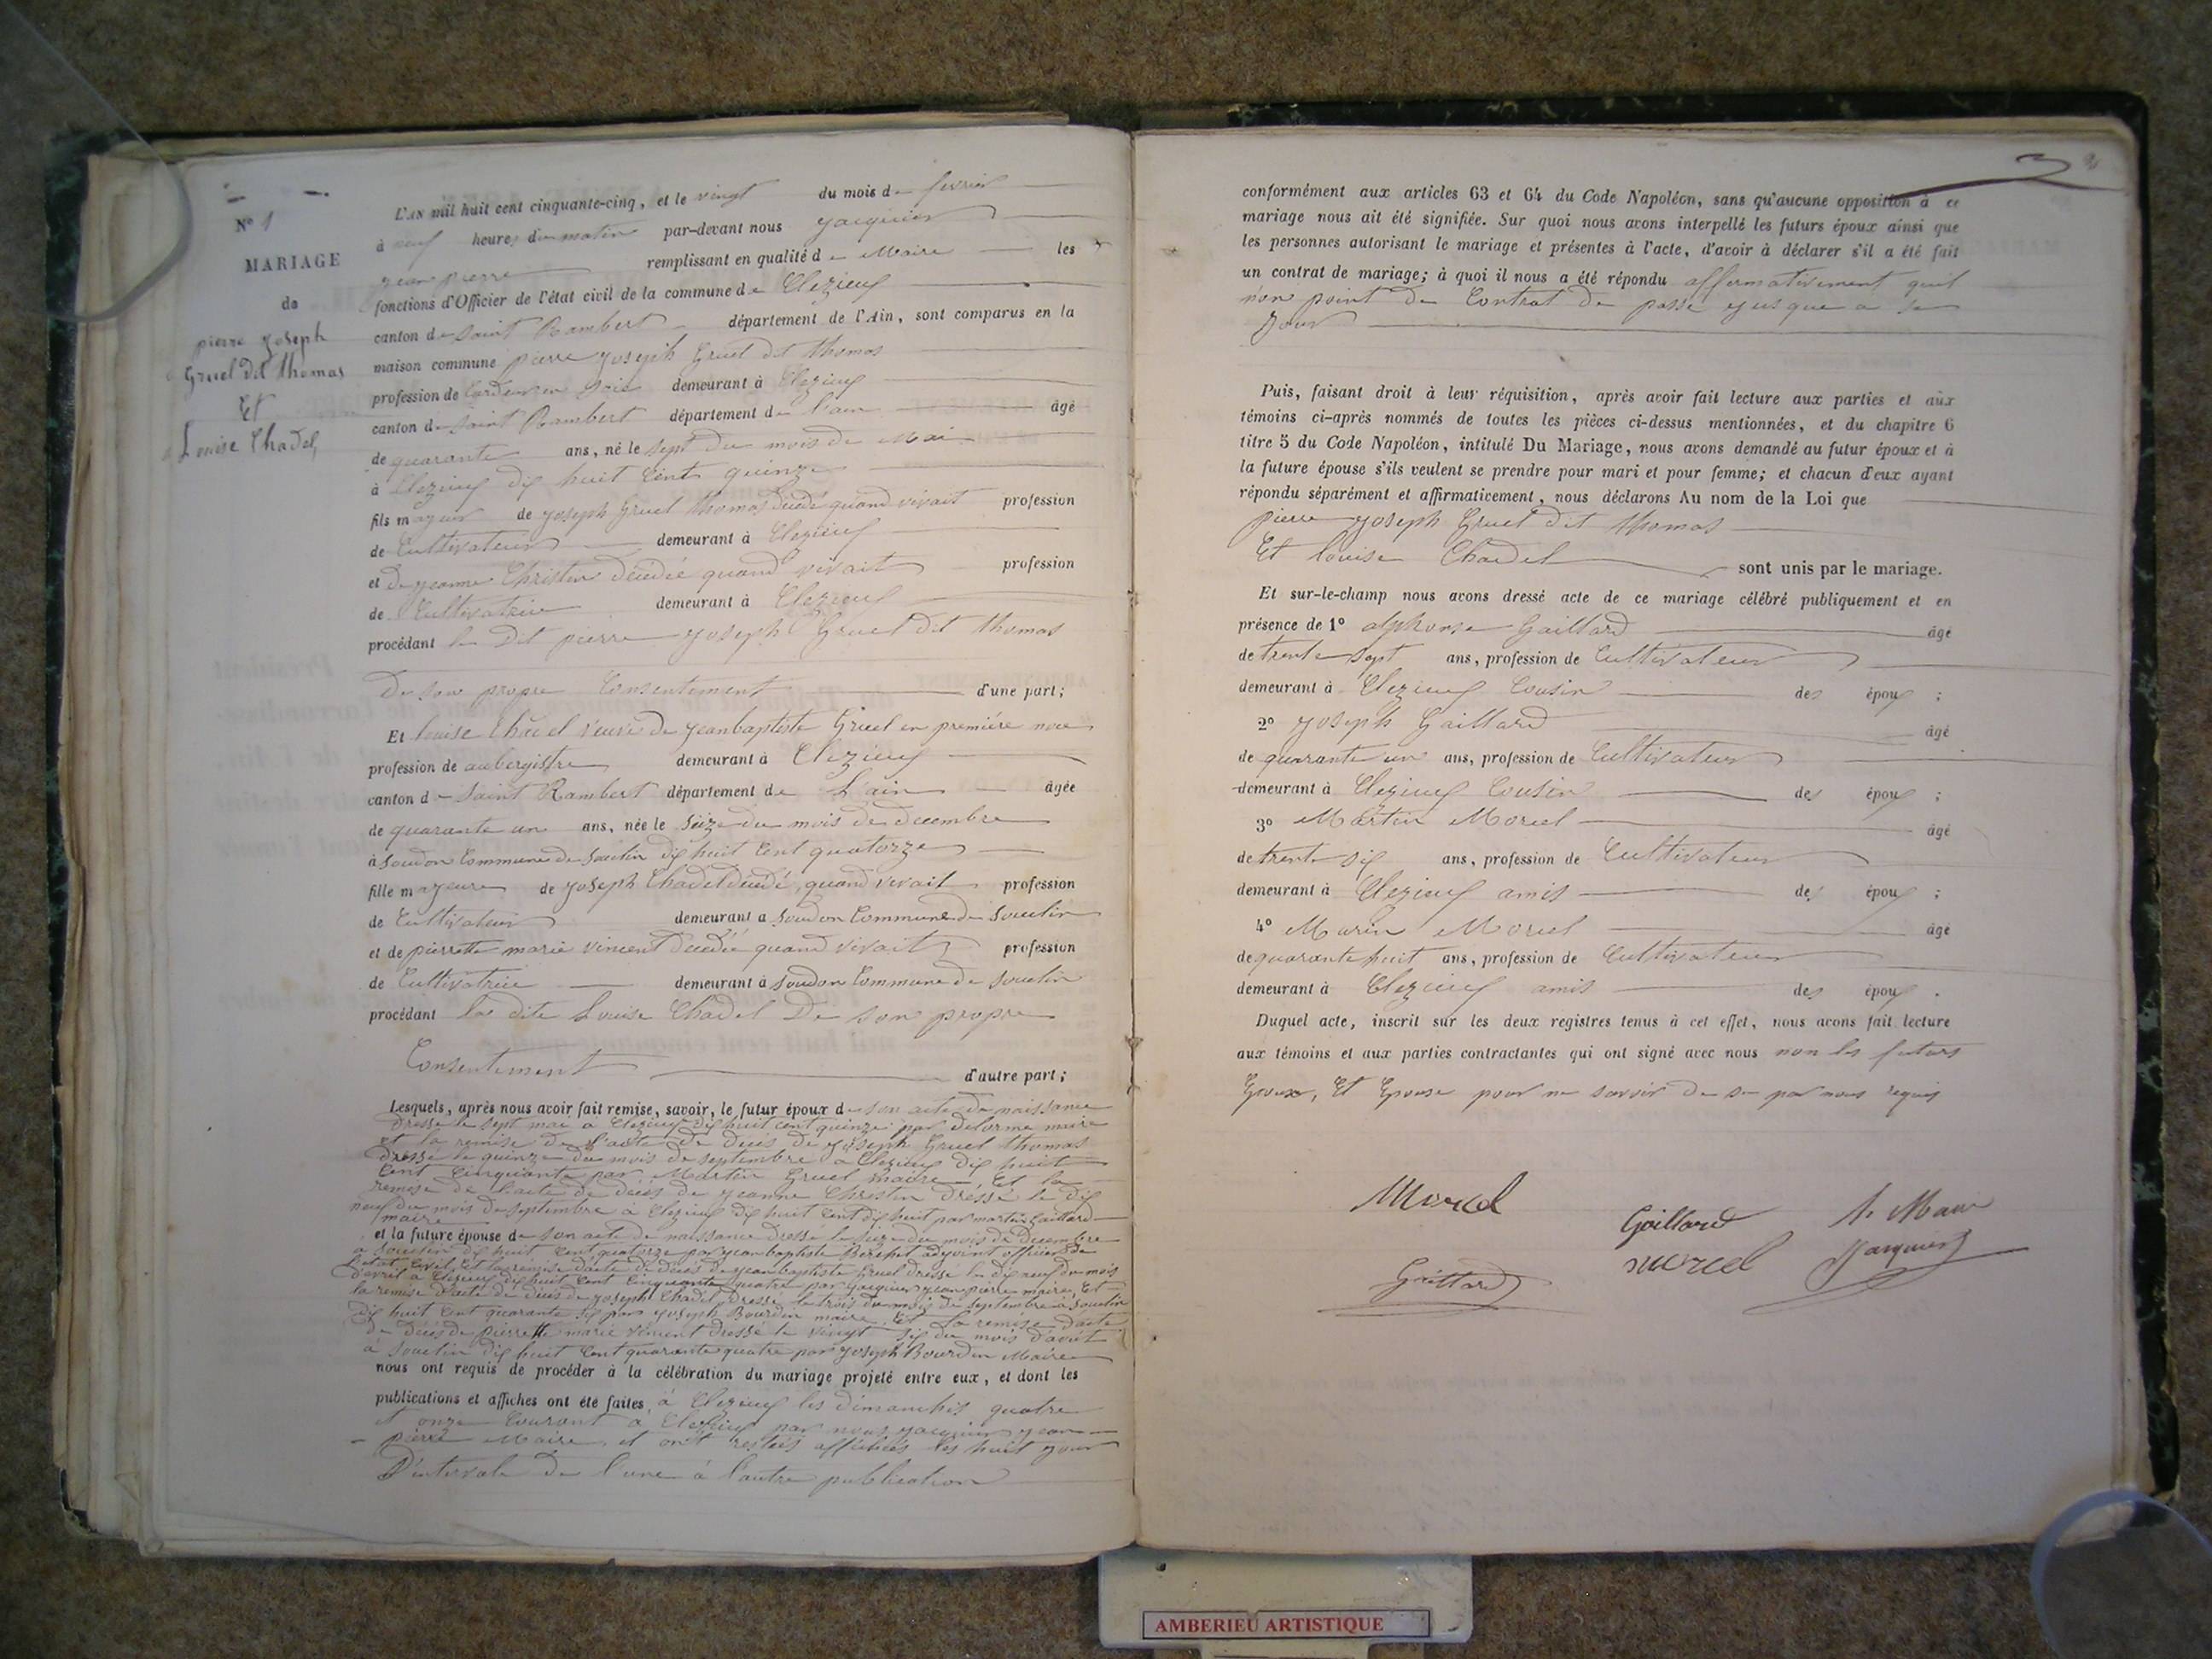 N° 1
MARIAGE
de
pierre joseph
Gruel dit thomas
Et
Louise Chadel
L'AN mil huit cent cinquante-cinq, et le vingt du mois de fevrier
à neuf heures du matin par-devant nous jacquier
jean pierre remplissant en qualité de Maire les
fonctions d'Officier de l'état civil de la commune de Clezieux
canton de Saint Rambert département de l'Ain, sont comparus en la
maison commune pierre joseph Gruel dit thomas
profession de Cardeur en soie demeurant à Clezieux
canton de Saint Rambert département de l'ain âgé
de quarante ans, né le sept du mois de Mai
à Clezieux dix huit Cent quinze
fils majeur de joseph Gruel thomas décédé quand vivait profession
de Cultivateur demeurant à Clezieux
et de jeanne Christin décédée quand vivait profession
de Cultivatrice demeurant à Clezieux
procédant le dit pierre joseph Gruel dit thomas
De son propre Consentement d'une part;
Et louise Chadel veuve de jean baptiste Gruel en première noce
profession de aubergistre demeurant à Clezieux
canton de Saint Rambert département de L'ain âgée
de quarante un ans, née le seize du mois de decembre
à soudon Commune de souclin dix huit Cent quatorze
fille majeure de joseph Chadel décédé, quand vivait profession
de Cultivateur demeurant à Soudon Commune de Souclin
et de pierrette marie vincent décédée quand vivait profession
de Cultivatrice demeurant à soudon Commune de souclin
procédant la dite Louise Chadel De son propre
Consentement d'autre part;
Lesquels, après nous avoir fait remise, savoir, le futur époux de son acte de naissance
dressé le sept mai a Clezieux dix huit cent quinze par delorme maire
et la remise de l'acte de décès de joseph Gruel thomas
dressé le quinze du mois de septembre a Clezieux dix huit
Cent Cinquante par Martin Gruel maire, Et la
remise de l'acte de décès de jeanne Christin dréssé le dix
neuf du mois de septembre a Clezieux dix huit Cent dix huit par martin Gaillard
maire
et la future épouse de son acte de naissance dressé le seize du mois de Decembre
a souclin dix huit Cent quatorze par jean baptiste Berchet adjoint officier de
l'état Civil, Et la remise d'acte de décès de jean baptiste Gruel dressé le dix neuf du mois
d'avril a Clezieux dix huit Cent Cinquante quatre par jacquier jean pierre maire, Et
la remise d'acte de décès de joseph Chadel Dressé le trois du mois de septembre à souclin
dix huit Cent quarante six par joseph Bourdin maire. Et la remise d'acte
de décès de pierrette marie vincent dressé le vingt six du mois d'aout
a souclin dix huit Cent quarante quatre par joseph Bourdin Maire
nous ont requis de procéder à la célébration du mariage projeté entre eux, et dont les
publications et affiches ont été faites à Clezieux les dimanches quatre
et onze Courant a Clezieux par nous jacquier jean
pierre Maire et ont restés affichés les huit jour
D'intervale de l'une à l'autre publication
conformément aux articles 63 et 64 du Code Napoléon, sans qu'aucune opposition à ce
mariage nous ait été signifiée. Sur quoi nous avons interpellé les futurs époux ainsi que
les personnes autorisant le mariage et présentes à l'acte, d'avoir à déclarer s'il a été fait
un contrat de mariage; à quoi il nous a été répondu affirmativement quil
n'on point de Contrat de passé jusque a se
jour
Puis, faisant droit à leur réquisition, après avoir fait lecture aux parties et aux
témoins ci-après nommés de toutes les pièces ci-dessus mentionnées, et du chapitre 6
titre 5 du Code Napoléon, intitulé Du Mariage, nous avons demandé au futur époux et à
la future épouse s'ils veulent se prendre pour mari et pour femme; et chacun d'eux ayant
répondu séparément et affirmativement, nous déclarons Au nom de la Loi que
pierre joseph Gruel dit thomas
Et louise Chadel sont unis par le mariage.
Et sur-le-champ nous avons dressé acte de ce mariage célébré publiquement et en
présence de 1° alphonse Gaillard âgé
de trente sept ans, profession de Cultivateur
demeurant à Clezieux Cousin des époux ;
2° joseph Gaillard âgé
de quarante un ans, profession de Cultivateur
demeurant à Clezieux Cousin des époux ;
3° Martin Morel âgé
de trente six ans, profession de Cultivateur
demeurant à Clezieux amis des époux ;
4° Marin Morel âgé
de quarante huit ans, profession de Cultivateur
demeurant à Clezieux amis des époux .
Duquel acte, inscrit sur les deux registres tenus à cet effet, nous avons fait lecture
aux témoins et aux parties contractantes qui ont signé avec nous non les futurs
Epoux, Et Epouse pour ne savoir de se par nous requis
Morel
Gaillard
Gaillard
morel
le Maire
Jacquier
AMBERIEU ARTISTIQUE